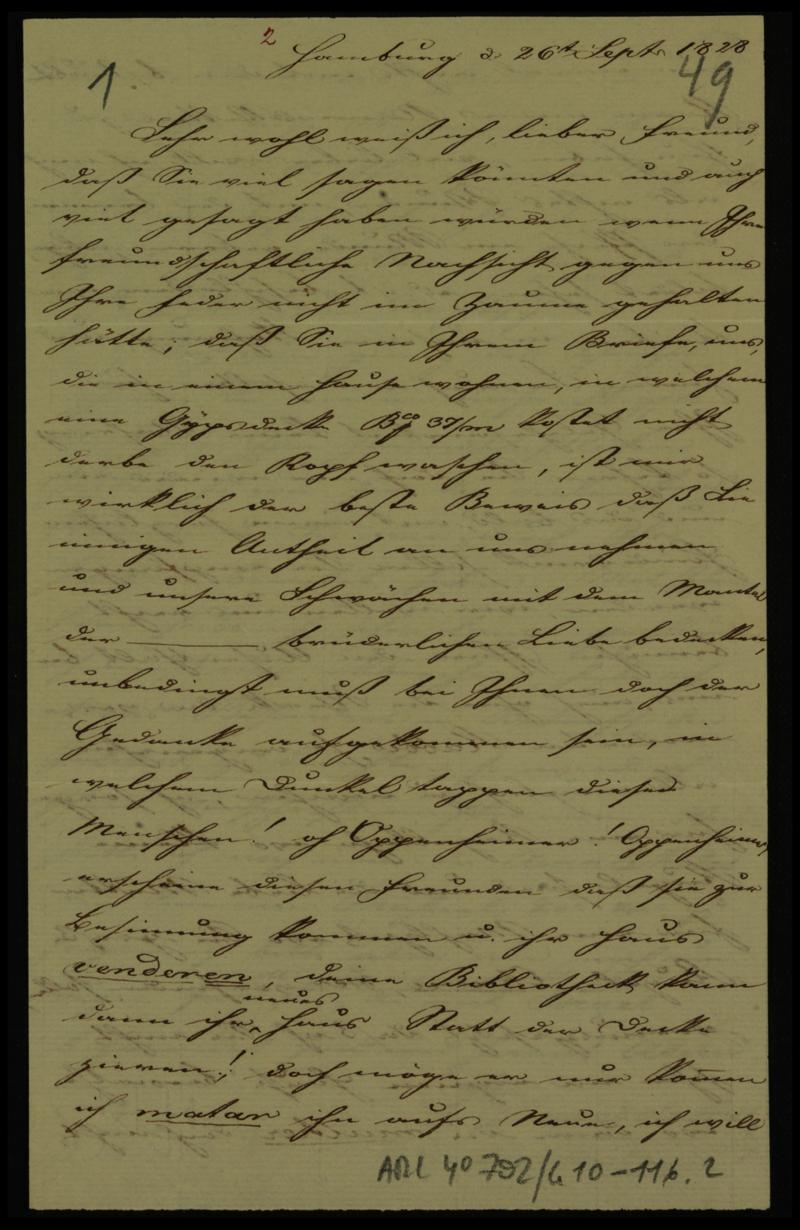 2
Hamburg d 26t Sept. 1828
1.
49
Sehr wohl weiß ich, lieber Freund,
daß Sie viel sagen könnten und auch
viel gesagt haben würden wenn Ihre
freundschaftliche Nachsicht gegen uns
Ihre Feder nicht im Zaume gehalten
hätte; daß Sie in Ihrem Briefe, uns,
die in einem Hause wohnen, in welchem
eine Gypsdecke 37/m kostet nicht
derbe den Kopf waschen, ist mir
wirklich der beste Beweis daß Sie
innigen Antheil an uns nehmen
und unsere Schwächen mit dem Mantel
der ——— brüderlichen Liebe bedecken,
unbedingt muß bei Ihnen doch der
Gedanke aufgekommen sein, in
welchem Dunkel tappen diese
Menschen! oh Oppenheimer! Oppenheimer,
erscheine diesen Freunden daß sie zur
Besinnung kommen u. ihr Haus
venderen, deine Bibliotheck kann
dann ihr neues Haus Statt der Decke
zieren! doch möge er nur kommen
ich matar ihn aufs Neue, ich will
ABL 4° 792/4 10-116. 2